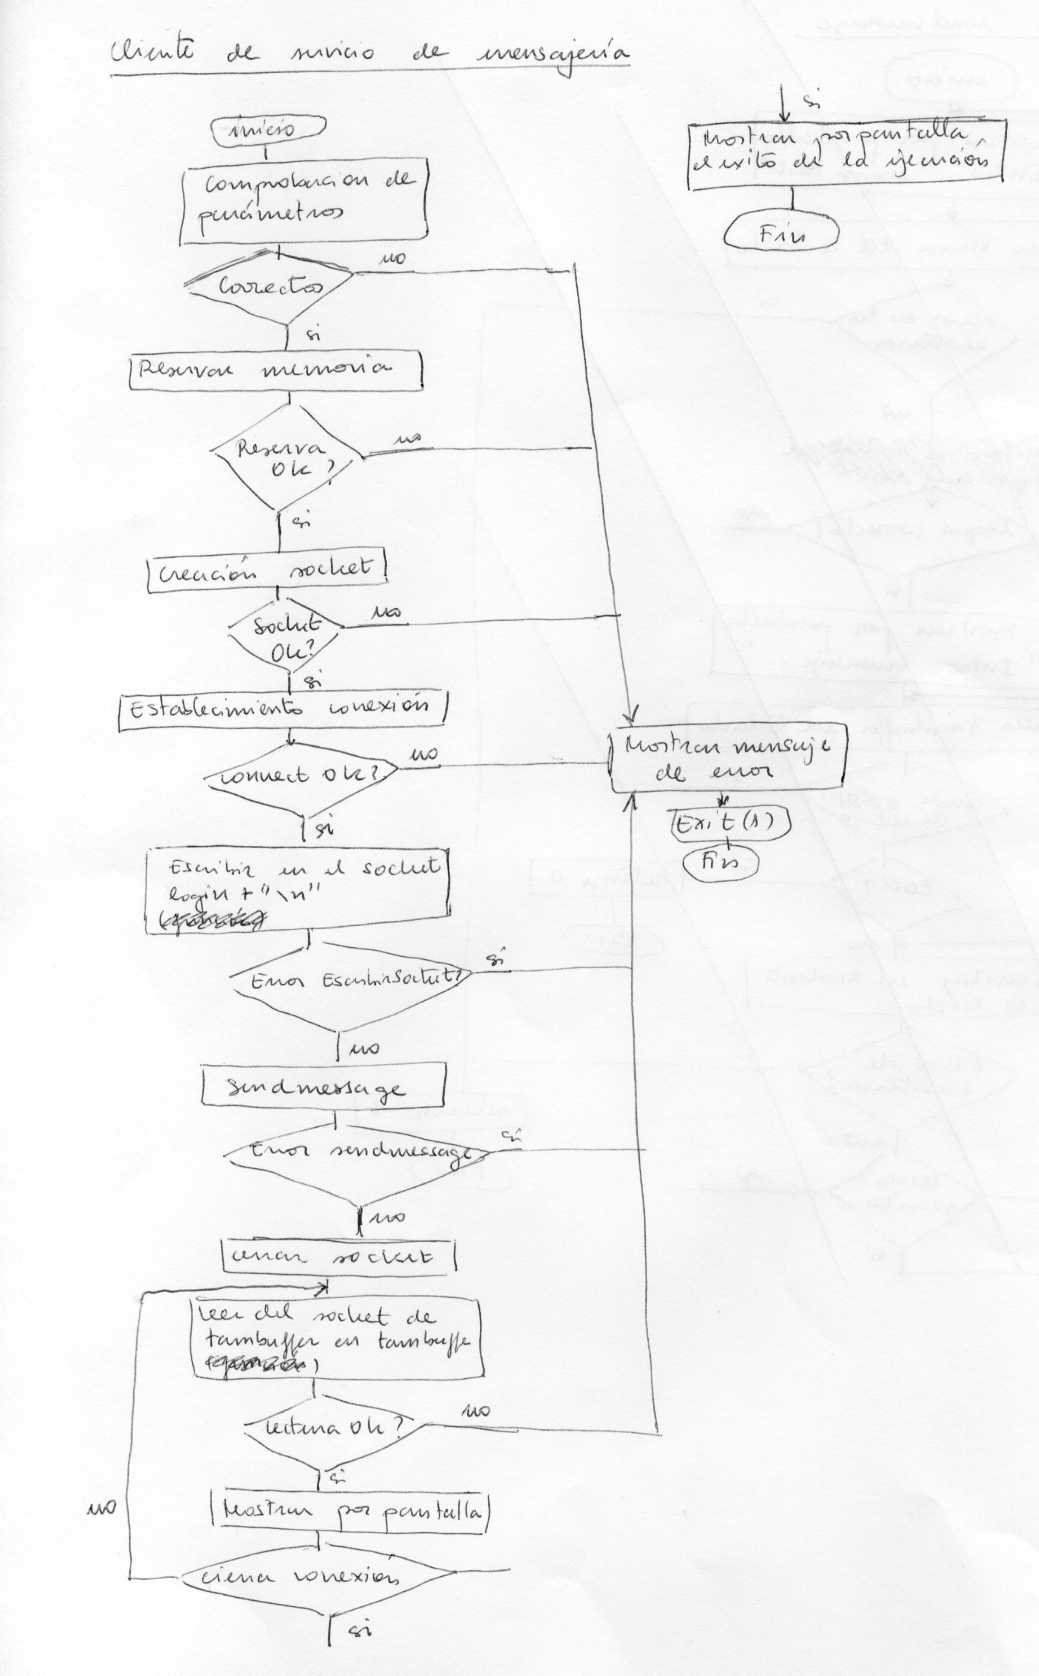 Cliente de servicio de mensajería
inicio
Comprobación de
parámetros
Correctos
no
si
Reservar memoria
Reserva
Ok?
no
si
Creación socket
Socket
Ok?
no
si
Establecimiento conexión
connect Ok?
no
si
Escribir en el socket
login + "\n"
Error EscribirSocket?
si
no
Sendmessage
Error sendmessage
si
no
cerrar socket
leer del socket de
tambuffer en tambuffe
lectura Ok?
no
si
Mostrar por pantalla
cierra conexión
no
si
Mostrar mensaje
de error
Exit(1)
Fin
si
Mostrar por pantalla
el exito de la ejecución
Fin